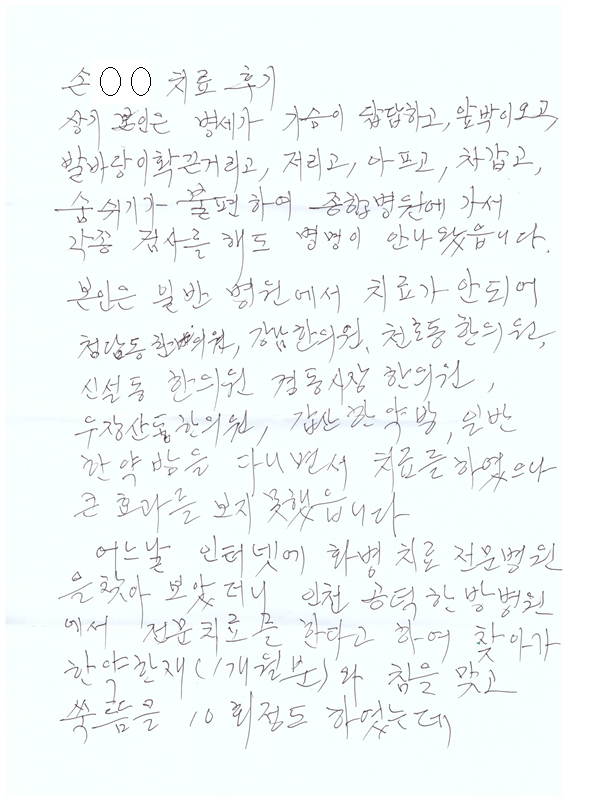 손 ○○ 치료 후기
상기 본인은 병세가 가슴이 답답하고, 압박이오고,
발바닥이화끈거리고, 저리고, 아프고, 차갑고,
숨쉬기가 불편하여 종합병원에 가서
각종 검사를 해도 병명이 안나왔읍니다.
본인은 일반 병원에서 치료가 안되어
청담동 한의원, 강남한의원, 천호동 한의원,
신설동 한의원 경동시장 한의원,
우장산동한의원, 갑산한약방, 일반
한약방을 다니면서 치료를 하였으나
큰 효과를 보지 못했읍니다
어느날 인터넷에 화병 치료 전문병원
을찾아 보았더니 인천 공덕 한방병원
에서 전문치료를 한다고 하여 찾아가
한약한재(1개월분)와 침을 맞고
쑥뜸을 10회정도 하였는데